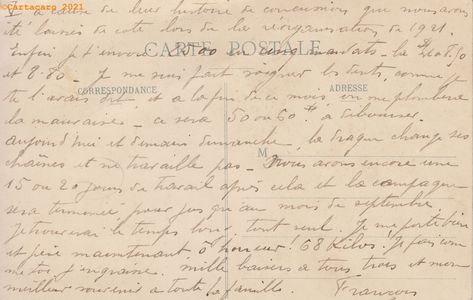 Cartacaro 2021
à cause de leur histoire de concussions que nous avons
été laissés de cote lors de la réorganisation de 1921.
Enfin je t'envoie en cinq mandats. le
CARTE POSTALE
et 8.80 - Je me suis fait soigner les dents, comme je
CORRESPONDANCE
ADRESSE
te l'avais dit et à la fin de ce mois on me plombera
la mauvaise - ce sera 50 ou 60 f. à débourser.
aujourd'hui et demain dimanche, la drague change ses
chaînes et ne travaille pas - Nous avons encore une
M
15 ou 20 jours de travail après cela et la campagne
sera terminée pour jusqu'au mois de septembre.
Je trouverai le temps bon, tout seul. Je me porte bien
et pèse maintenant ô honneur! 68 kilos! Je fais comme
toi j'engraisse. mille baisers à tous trois et mon
meilleur souvenir à toute la famille.
François